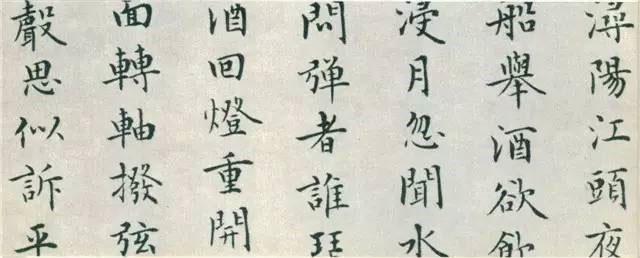 潯陽江頭夜
船舉酒欲飲
浸月忽聞水
問彈者誰琵
酒回燈重開
面轉軸撥弦
聲思似訴平